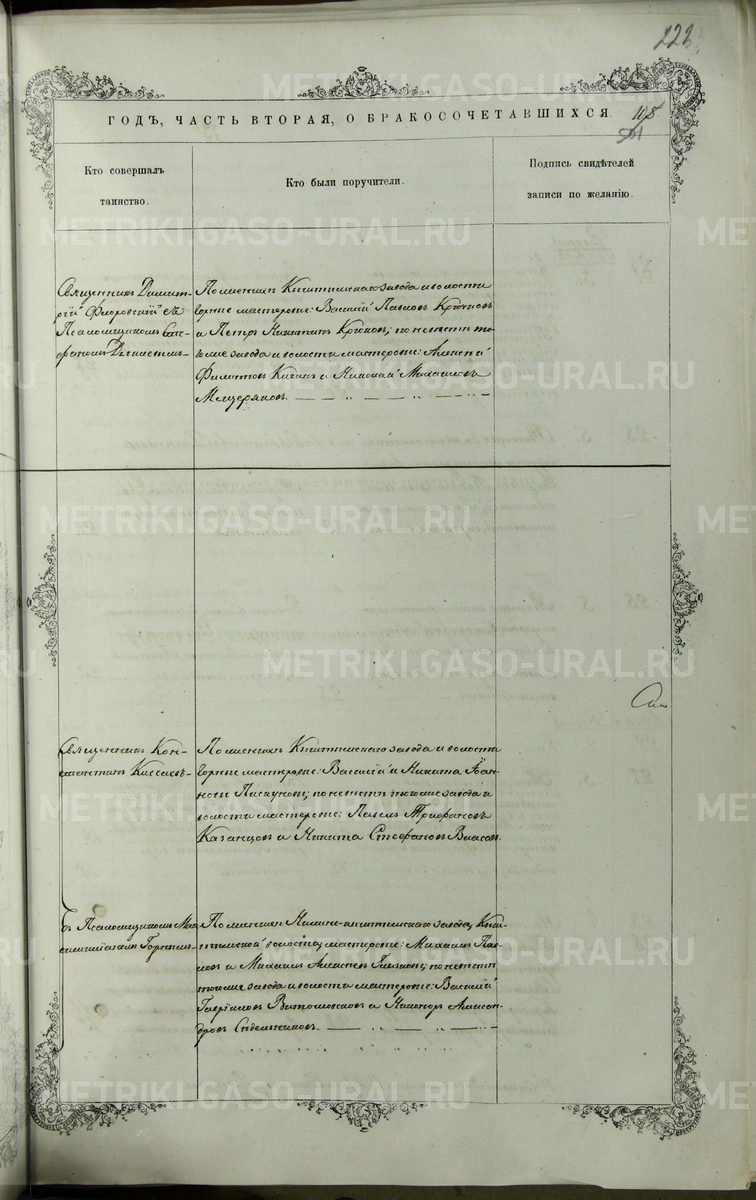 223
ГОДЪ, ЧАСТЬ ВТОРАЯ, О БРАКОСОЧЕТАВШИХСЯ.
Кто совершалъ
таинство.
Кто были поручители.
Подпись свидѣтелей
записи по желанію.
Священникъ Димит-
рій Флоровскій съ
Псаломщикомъ Сте-
фаномъ
По женихѣ Кыштымскаго завода и волости
горные мастеровые: Василій Павловъ Крючковъ
и Петръ Никитинъ Крюковъ; по невѣстѣ то-
го же завода и волости мастеровые: Алексѣй
Филиповъ и Николай Михаиловъ
Мещеряковъ.
Священникъ Кон-
стантинъ
По женихѣ Кыштымскаго завода и волости
горные мастеровые: Василій и Никита Іоан-
новы Пискуновы; по невѣстѣ того же завода и
волости мастеровые: Павелъ Трифановъ
Казанцовъ и Никита Стефановъ Власовъ.
съ Псаломщикомъ Мак-
симиліаномъ
По женихѣ Нижне-Кыштымскаго завода, Кыш-
тымской волости, мастеровые: Михаилъ Пав-
ловъ и Михаилъ Алексѣевъ Глазковы; по невѣстѣ
того же завода и волости мастеровые: Василій
Гавріиловъ и Никаноръ Алексан-
дровъ Сѣдельниковъ.
METRIKI.GASO-URAL.RU